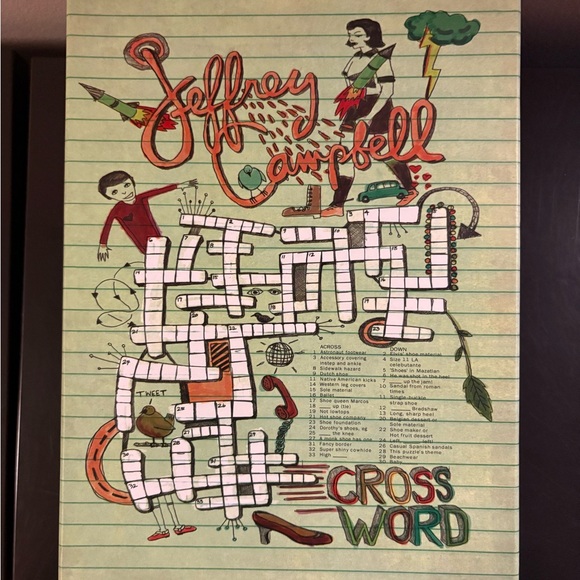 Jeffrey
Campbell
TWEET
ACROSS
1 Astronaut footwear
3 Accessory covering
instep and ankle
8 Sidewalk hazard
9 Dutch shoe
11 Native American kicks
14 Western leg covers
15 Sole material
16 Ballet
17 Shoe queen Marcos
18 ___ up (tie)
19 Not lowtops
21 Hot shoe company
23 Shoe foundation
24 Dorothy's shoes, eg
25 ___ the knee
27 A monk shoe has one
31 Fancy border
32 Super shiny cowhide
33 High ___
DOWN
2 Elvis' shoe material
4 Size 11 LA
celebutante
5 'Shoes' in Mazatlan
6 He was shot in the heel
7 ___ up the jam!
10 Sandal from roman
times
11 Single-buckle
strap shoe
12 ___ Bradshaw
13 Long, sharp heel
20 Belgian dessert or
Sole material
22 Shoe maker or
Hot fruit dessert
24 Left
26 Casual Spanish sandals
28 This puzzle's theme
29 Beachwear
30 Baby
CROSS
WORD